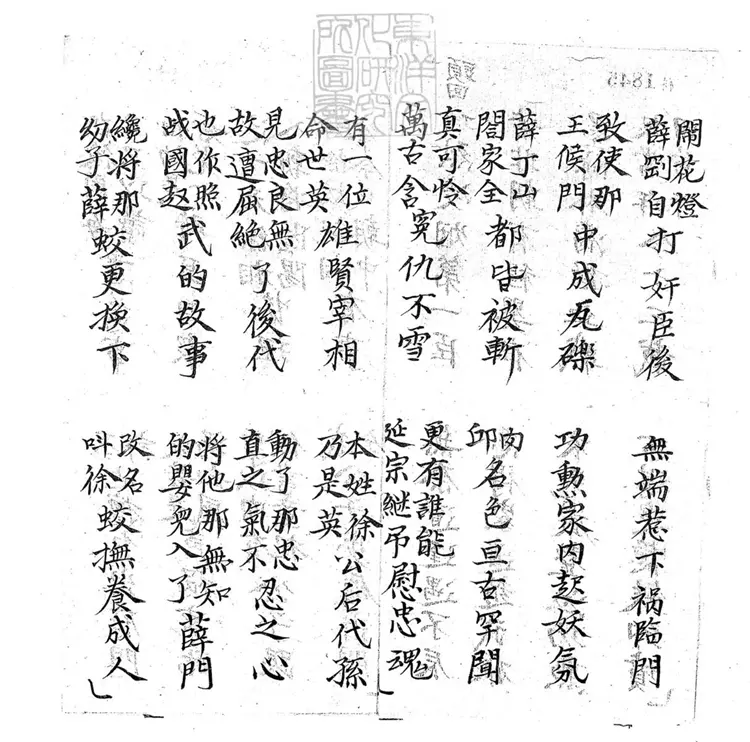 鬧花燈薛剛自打奸臣後
無端惹下禍臨門
致使那王候門中成瓦礫
功勲家内起妖氛
薛丁山閤家全都皆被斬
肉邱名色亘古罕聞
真可怜萬古含冤仇不雪
更有誰能延宗継吊慰忠魂
有一位命世英雄賢宰相
本姓徐乃是英公后代孫
見忠良無故遭屈絶了後代
動了那忠直之氣不忍之心
也作照战國赵武的故事
將他那無知的嬰兒入了薛門
纔將那幼子薛蛟更换下
改名叫徐蛟撫養成人
東洋文化研究所圖書